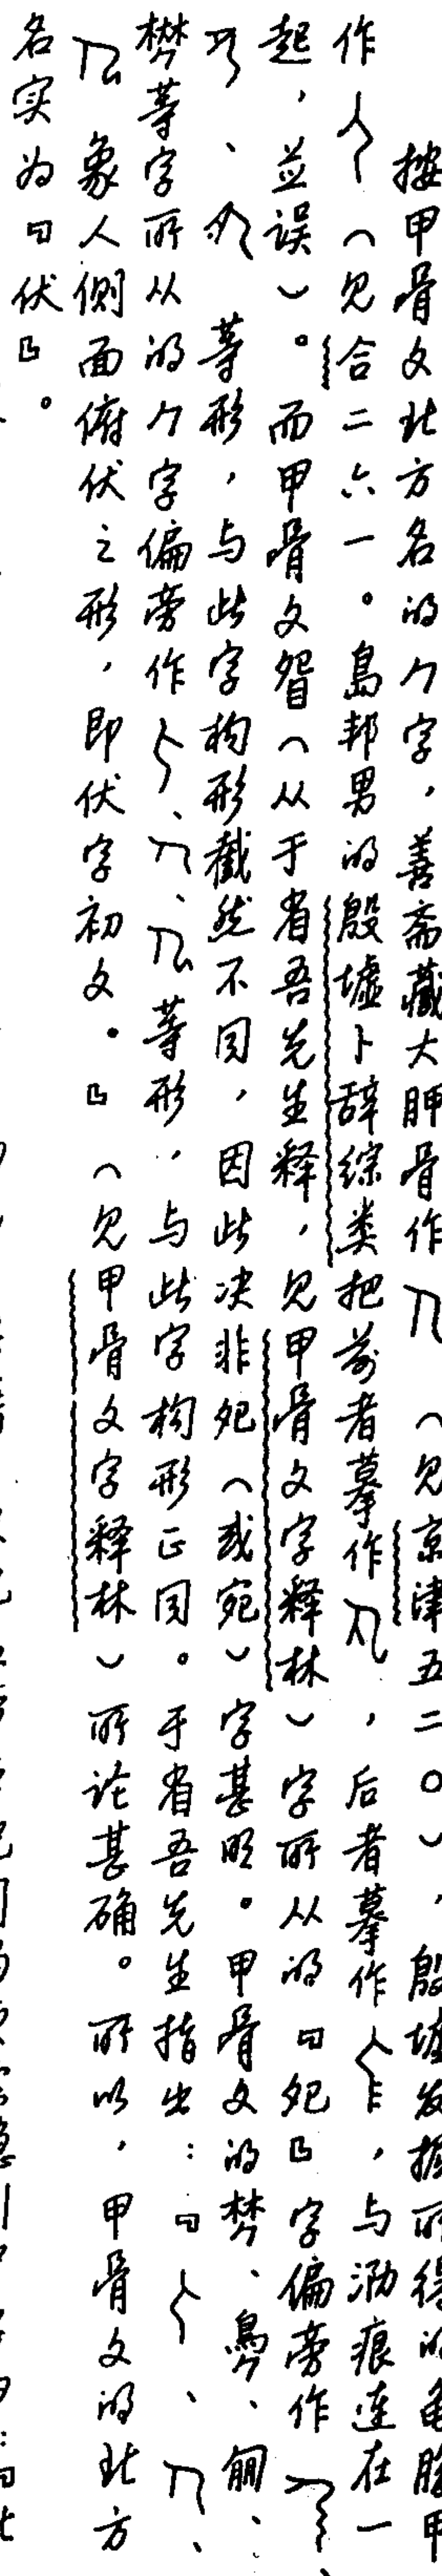 按甲骨文北方名的𠂊字，善斋藏大胛骨作（见京津五二〇），殷墟发掘所得的龟腹甲
作（见合二六一。島邦男的殷墟卜辞综类把前者摹作，后者摹作，与泐痕连在一
起，並误）。而甲骨文眢（从于省吾先生释，见甲骨文字释林）字所从的「夗」字偏旁作、
、等形，与此字构形截然不同，因此决非夗（或宛）字甚明。甲骨文的
等字所从的𠂊字偏旁作、、等形，与此字构形正同。于省吾先生指出：「、、
象人侧面俯伏之形，即伏字初文。」（见甲骨文字释林）所论甚确。所以，甲骨文的北方
名实为「伏」。